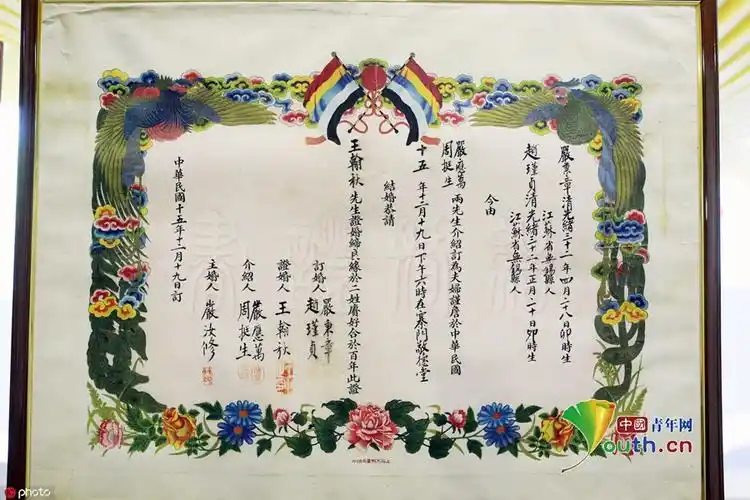 嚴秉章清光緒三十一年四月二十八日卯時生
江蘇省無錫縣人
趙瑾貞清光緒三十二年正月二十日卯時生
江蘇省無錫縣人
今由
嚴應萬
周挺生
兩先生介紹訂為夫婦謹詹於中華民國
十五年十二月十九日下午六時在寨門敬德堂
結婚恭請
王翰秋先生證婚締良緣於二姓賡好合於百年此證
訂婚人
嚴秉章
趙瑾貞
證婚人王翰秋
介紹人
嚴應萬
周挺生
主婚人嚴汝修
中華民國十五年十二月十九日訂
中國青年网
Youth.cn
photo